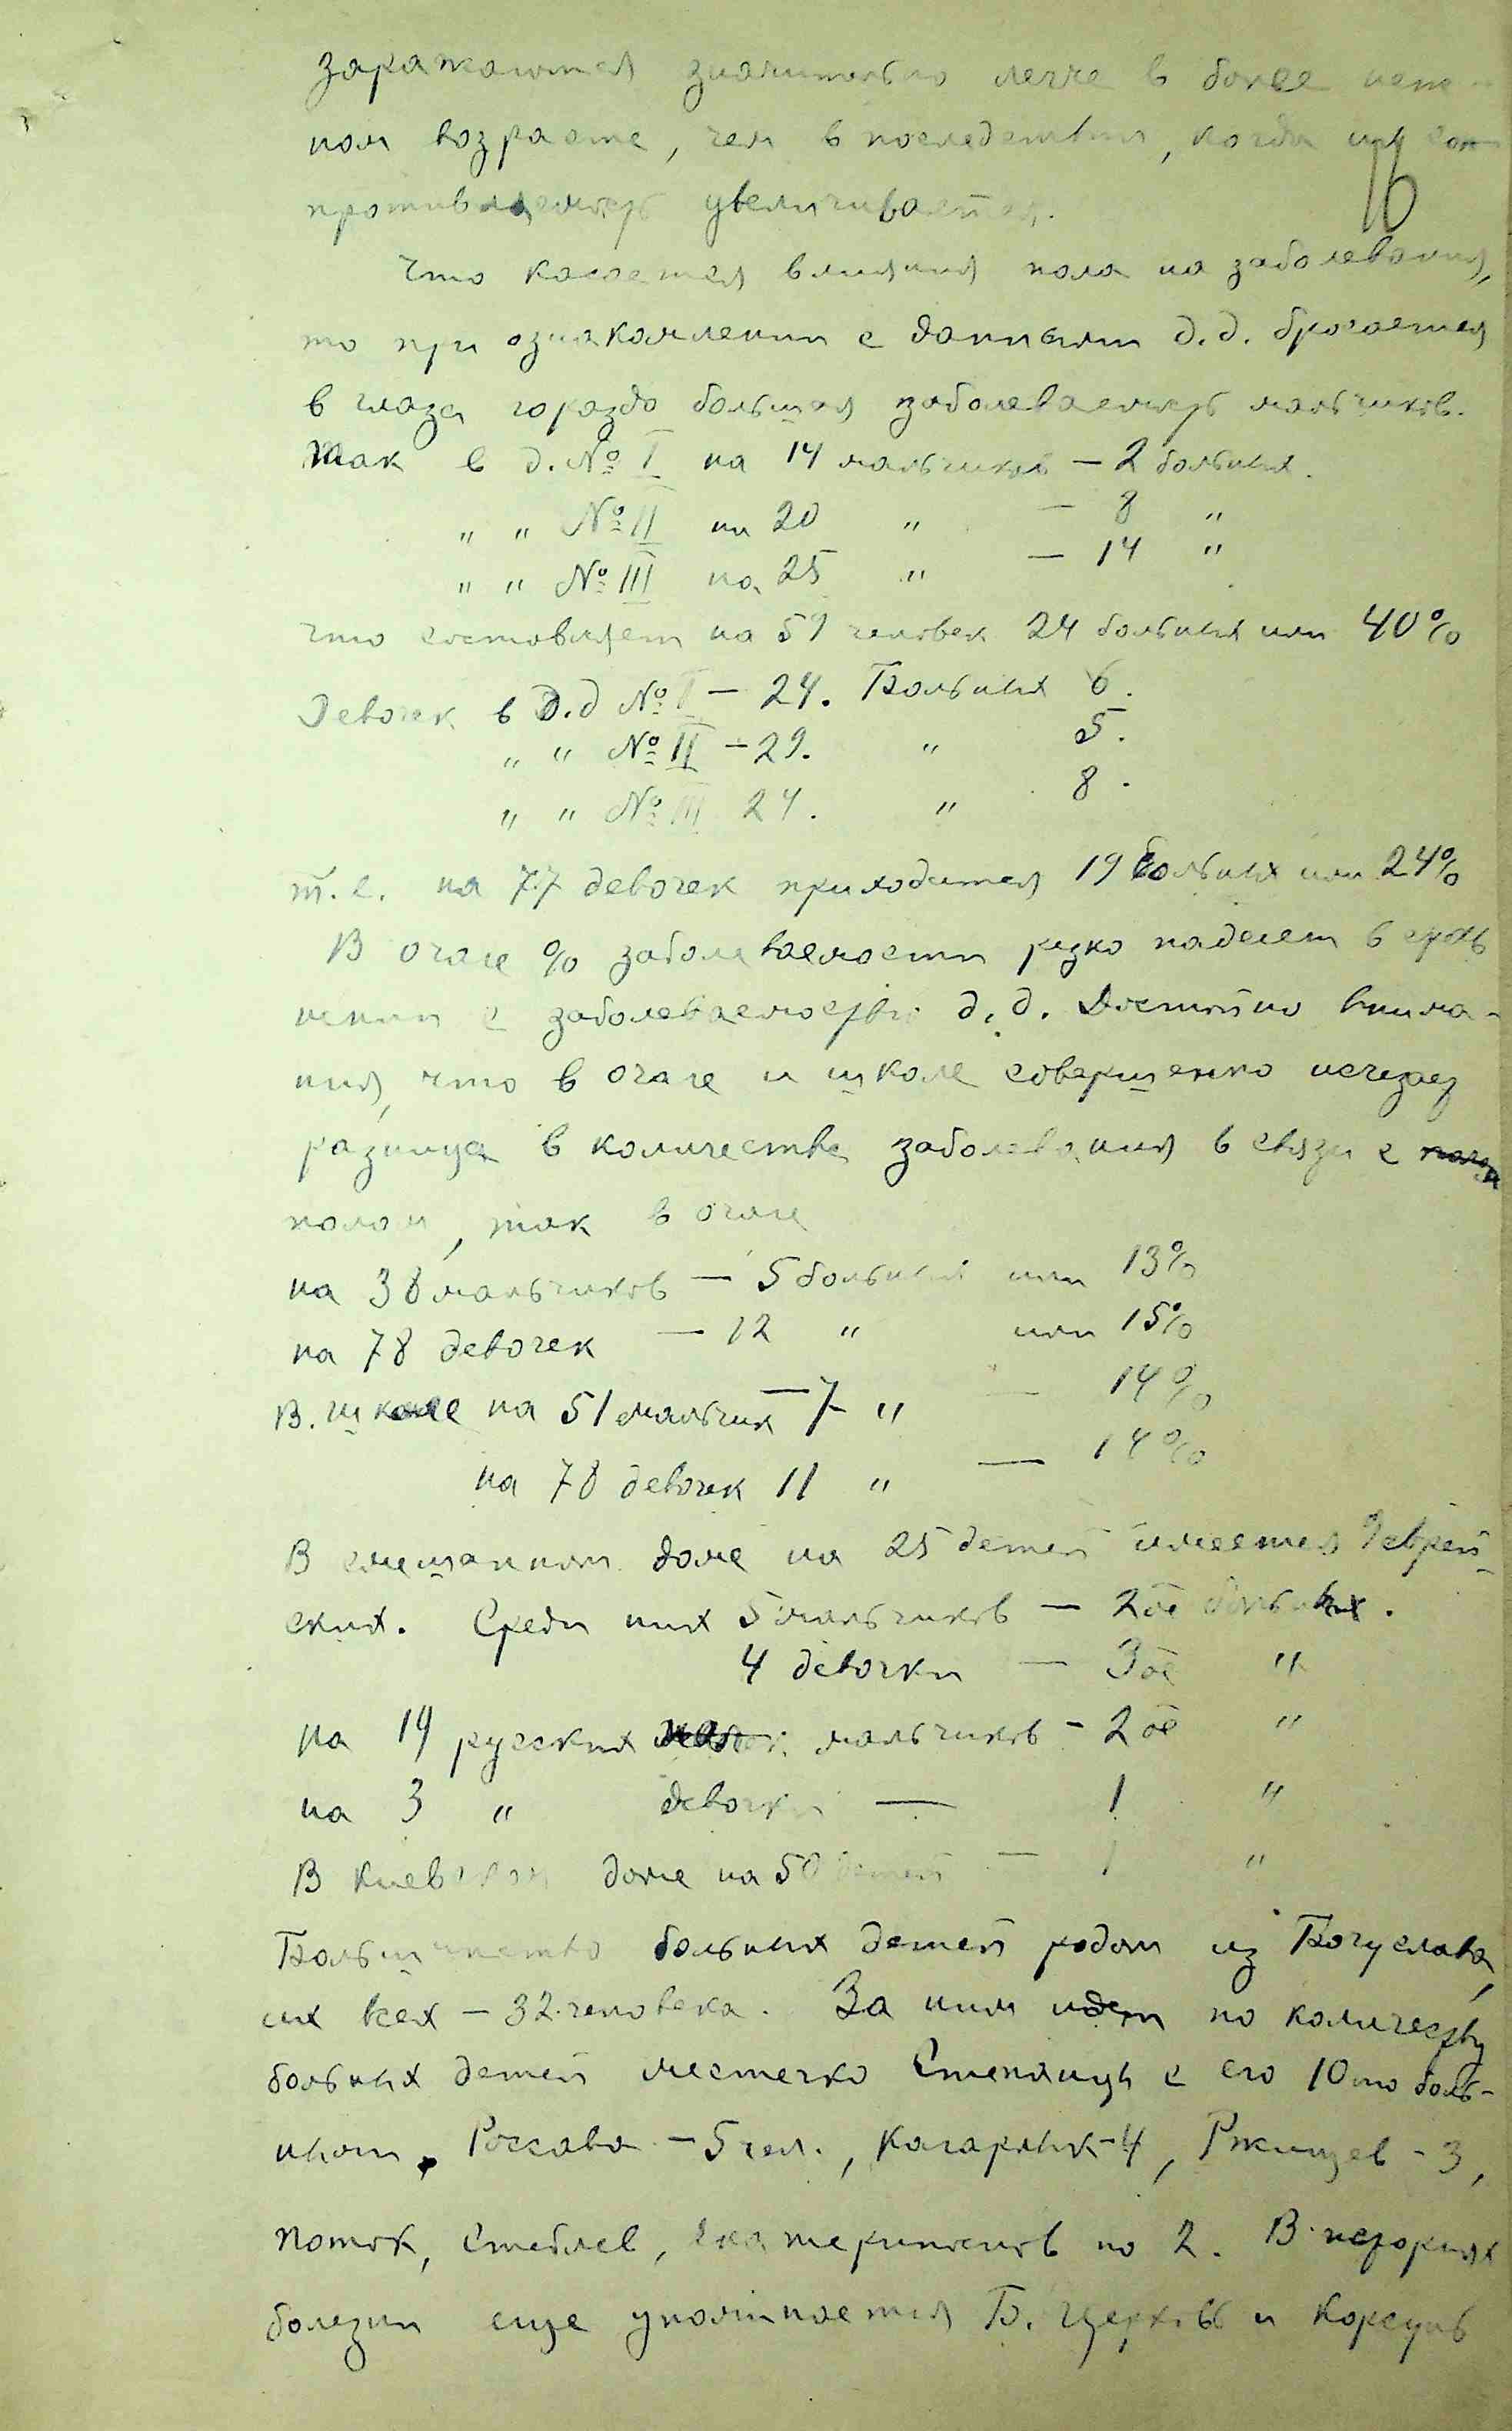 заражаются значительно легче в более неж-
ном возрасте, чем в последствии, когда их соп-
16
противляемость увеличивается.
Что касается влияния пола на заболевания,
то при ознакомлении с данными д.д. бросается
в глаза гораздо большая заболеваемость мальчиков.
Так в д. № I на 14 мальчиков – 2 больных.
" " № II на 20 " – 8 "
" " № III на 25 " – 14 "
что составляет на 59 человек 24 больных или 40%
Девочек в Д.д № I – 24. Больных 6.
" " № II – 29. " 5.
" " № III 24. " 8.
т.е. на 77 девочек приходится 19 больных или 24%
В очаге % заболеваемости резко падает в срав
нении с заболеваемостью д.д. Достойно внима-
ния, что в очаге и школе совершенно исчезает
разница в количестве заболевания в связи с
полом, так в очаге
на 38 мальчиков – 5 больных или 13%
на 78 девочек – 12 " или 15%
В. школе на 51 мальчик – 7 " – 14%
на 78 девочек 11 " – 14%
В смешанном доме на 25 детей имеется 9 еврей-
ских. Среди них 5 мальчиков – 2ое больных.
4 девочки – 3ое "
на русских мальчиков – 2ое "
на 3 " девочки – 1 "
В Киевском доме на 50 детей – 1 "
Большинство больных детей родом из Богуслава,
их всех – 32 человека. За ним идет по количеству
больных детей местечко Степанцы с его 10тью боль-
ными. Россава – 5 чел., Кагарлык – 4, Ржищев – 3,
Поток, Стеблев, Екатеринослов по 2. В историях
болезни еще упоминается Б. Церковь и Корсунь